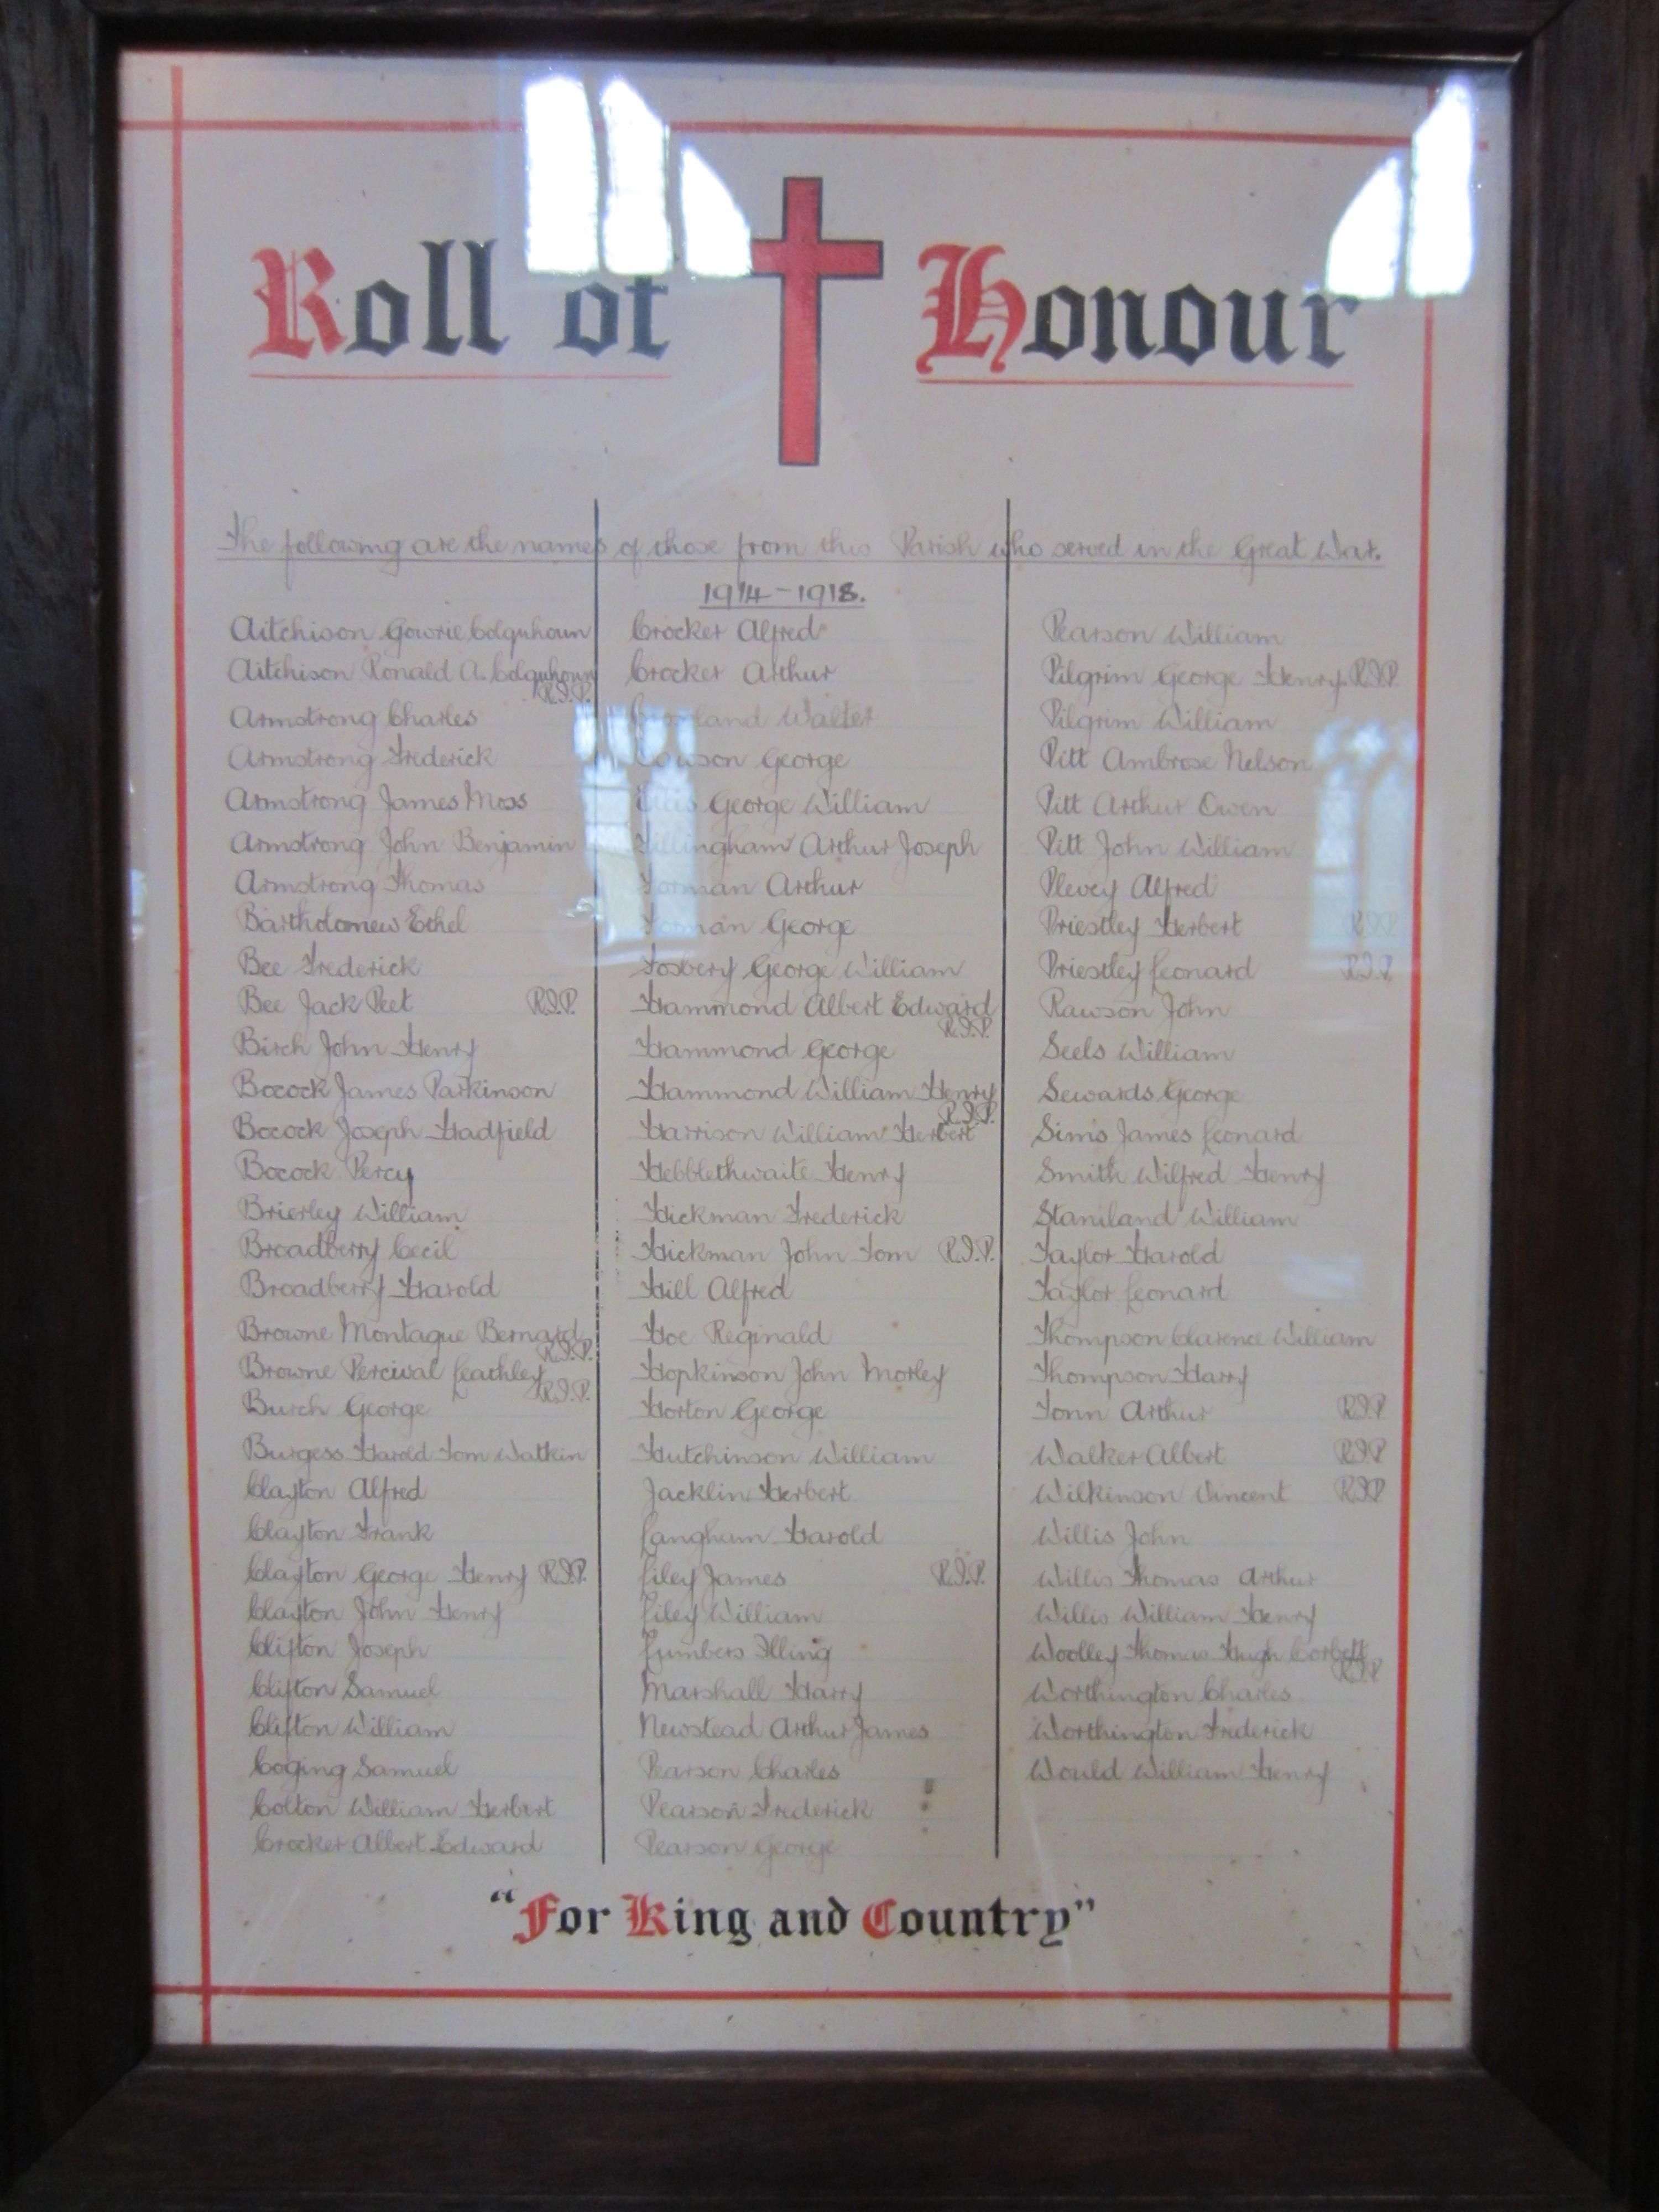 Roll of Honour
The following are the names of those from this Parish who served in the Great War.
1914-1918.
Aitchison Gowrie Colquhoun
Aitchison Ronald A. Colquhoun
R.I.P.
Armstrong Charles
Armstrong Frederick
Armstrong James Moss
Armstrong John Benjamin
Armstrong Thomas
Bartholomew Ethel
Bee Frederick
Bee Jack Peet R.I.P.
Birch John Henry
Bocock James Parkinson
Bocock Joseph Hadfield
Bocock Percy
Brierley William
Broadberry Cecil
Broadberry Harold
Browne Montague Bernard
R.I.P.
Browne Percival Leathley
R.I.P.
Burch George
Burgess Harold Tom Watkin
Clayton Alfred
Clayton Frank
Clayton George Henry R.I.P.
Clayton John Henry
Clifton Joseph
Clifton Samuel
Clifton William
Coging Samuel
Colton William Herbert
Crocker Albert Edward
Crocker Alfred
Crocker Arthur
Walter
George
Ellis George William
Fillingham Arthur Joseph
Forman Arthur
Forman George
Fosbery George William
Hammond Albert Edward
R.I.P.
Hammond George
Hammond William Henry
R.I.P.
Harrison William Herbert
Hebblethwaite Henry
Hickman Frederick
Hickman John Tom R.I.P.
Hill Alfred
Hoe Reginald
Hopkinson John Morley
Horton George
Hutchinson William
Jacklin Herbert
Langham Harold
Liley James R.I.P.
Liley William
Lumbers Illing
Marshall Harry
Newstead Arthur James
Pearson Charles
Pearson Frederick
Pearson George
Pearson William
Pilgrim George Henry R.I.P.
Pilgrim William
Pitt Ambrose Nelson
Pitt Arthur Owen
Pitt John William
Plevey Alfred
Priestley Herbert R.I.P.
Priestley Leonard R.I.P.
Rawson John
Seels William
Sewards George
Sims James Leonard
Smith Wilfred Henry
Staniland William
Taylor Harold
Taylor Leonard
Thompson Clarence William
Thompson Harry
Tonn Arthur R.I.P.
Walker Albert R.I.P.
Wilkinson Vincent R.I.P.
Willis John
Willis Thomas Arthur
Willis William Henry
Woolley Thomas Hugh Corbett
R.I.P.
Worthington Charles
Worthington Frederick
Would William Henry
"For King and Country"